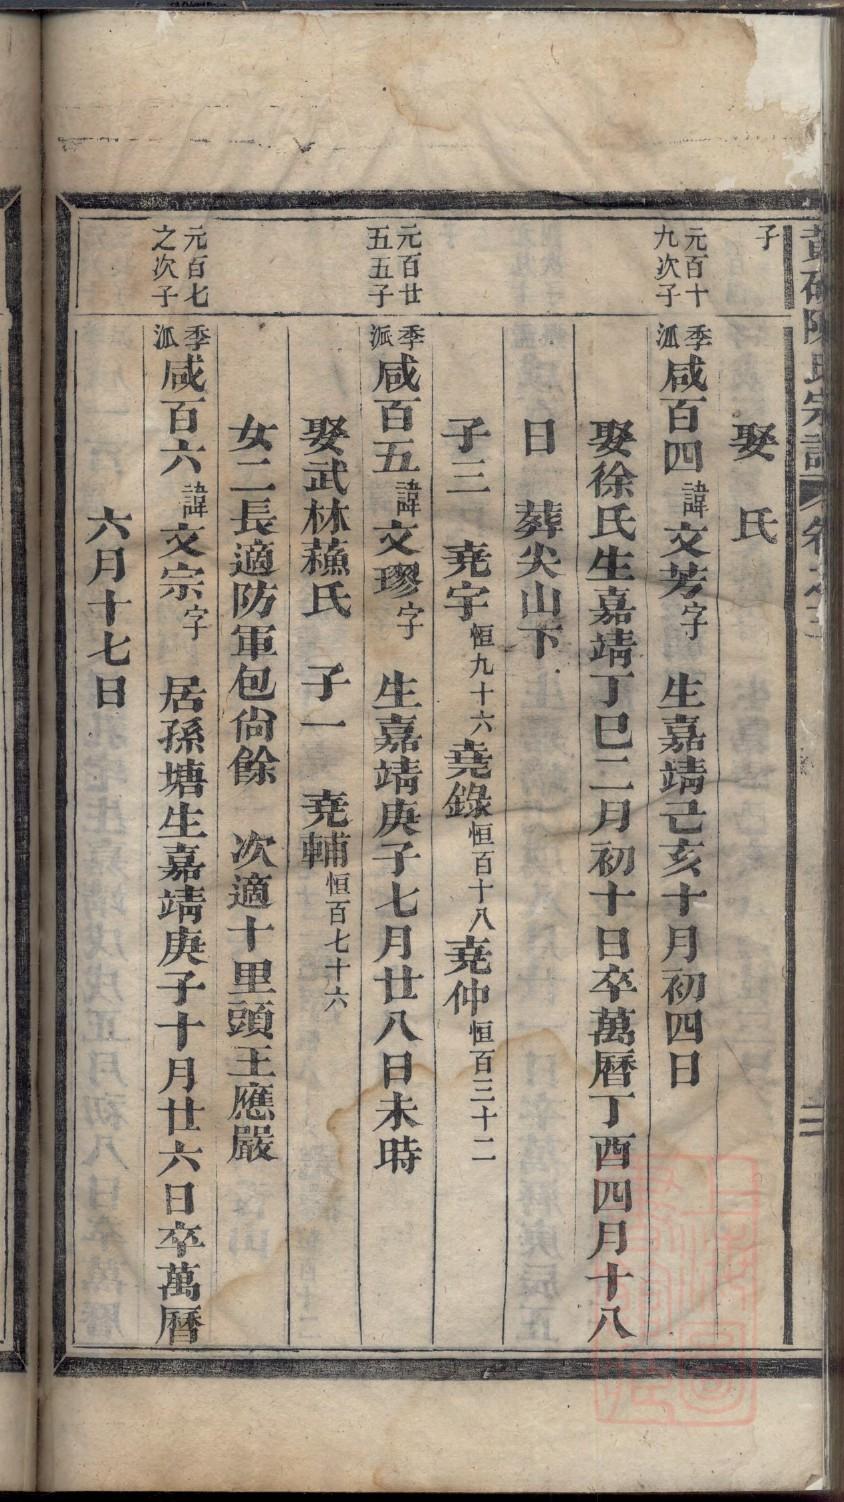 陳氏宗譜 卷之三
二
子
娶 氏
元百十九次子
季派咸百四諱文芳字 生嘉靖己亥十月初四日
娶徐氏生嘉靖丁巳二月初十日卒萬曆丁酉四月十八
日 葬尖山下
子三 堯宇恒九十六堯錄恒百十八堯仲恒百三十二
元百廿五五子
季派咸百五諱文璆字 生嘉靖庚子七月廿八日未時
娶武林蘓氏 子一 堯輔恒百七十六
女二長適防軍包尙餘 次適十里頭王應嚴
元百七之次子
季派咸百六諱文宗字 居孫塘生嘉靖庚子十月廿六日卒萬曆
六月十七日